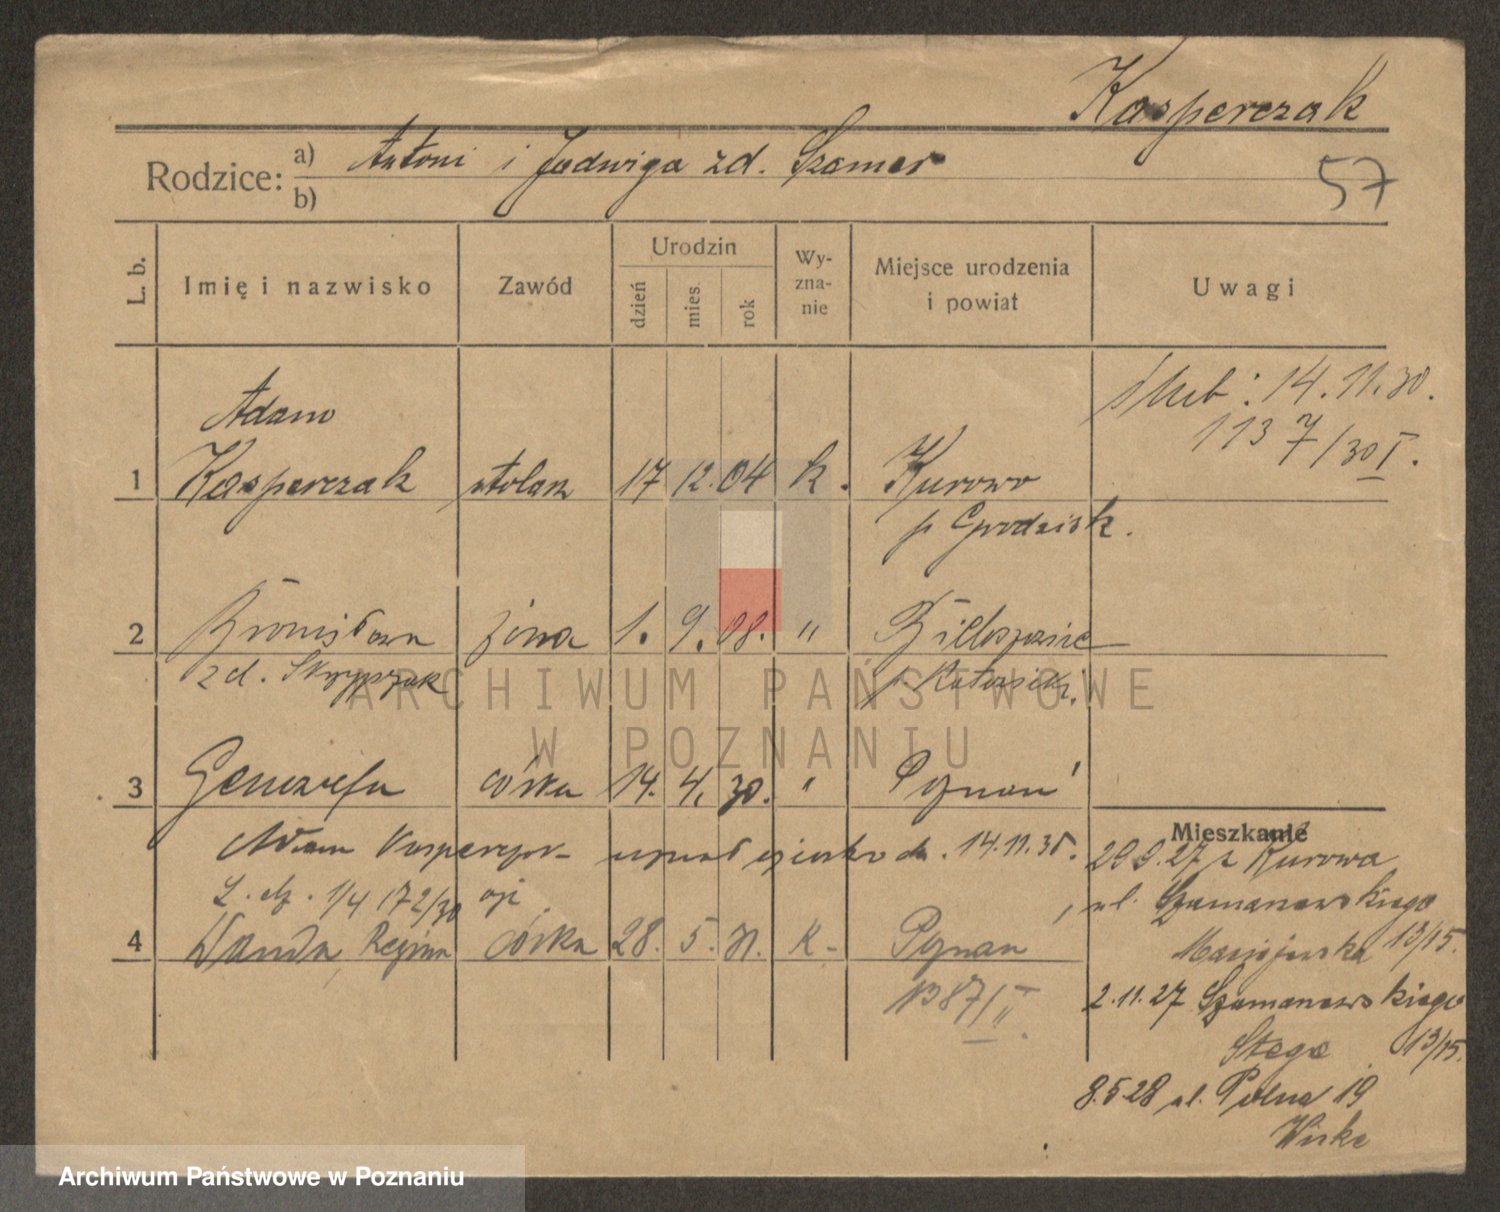 Kasperczak
Rodzice: a) Antoni i Jadwiga zd. Szamer
b)
57
L. b. Imię i nazwisko Zawód Urodzin dzień mies. rok Wy-zna-nie Miejsce urodzenia i powiat Uwagi
ślub: 14.11.30.
1137/30 I.
Adam
1 Kasperczak stolarz 17 12. 04 k. Kurowo
p Grodzisk.
2 Bronisława żona 1. 9. 08. "
zd. Skrzypczak
3 Genowefa córka 14. 4. 30. " Poznań
Adam Kasperczak uznał dziecko dn. 14.11.30.
L. dz. 1/4 172/30
4 Wanda Regina córka 28. 5. 31. k- Poznań
1387/II.
Mieszkanie
29 9.27 z Kurowa
ul. Szamarzewskiego
13/15.
2.11.27 Szamarzewskiego
13/15.
8.5.28 ul. Polna 19
ARCHIWUM PAŃSTWOWE
W POZNANIU
Archiwum Państwowe w Poznaniu